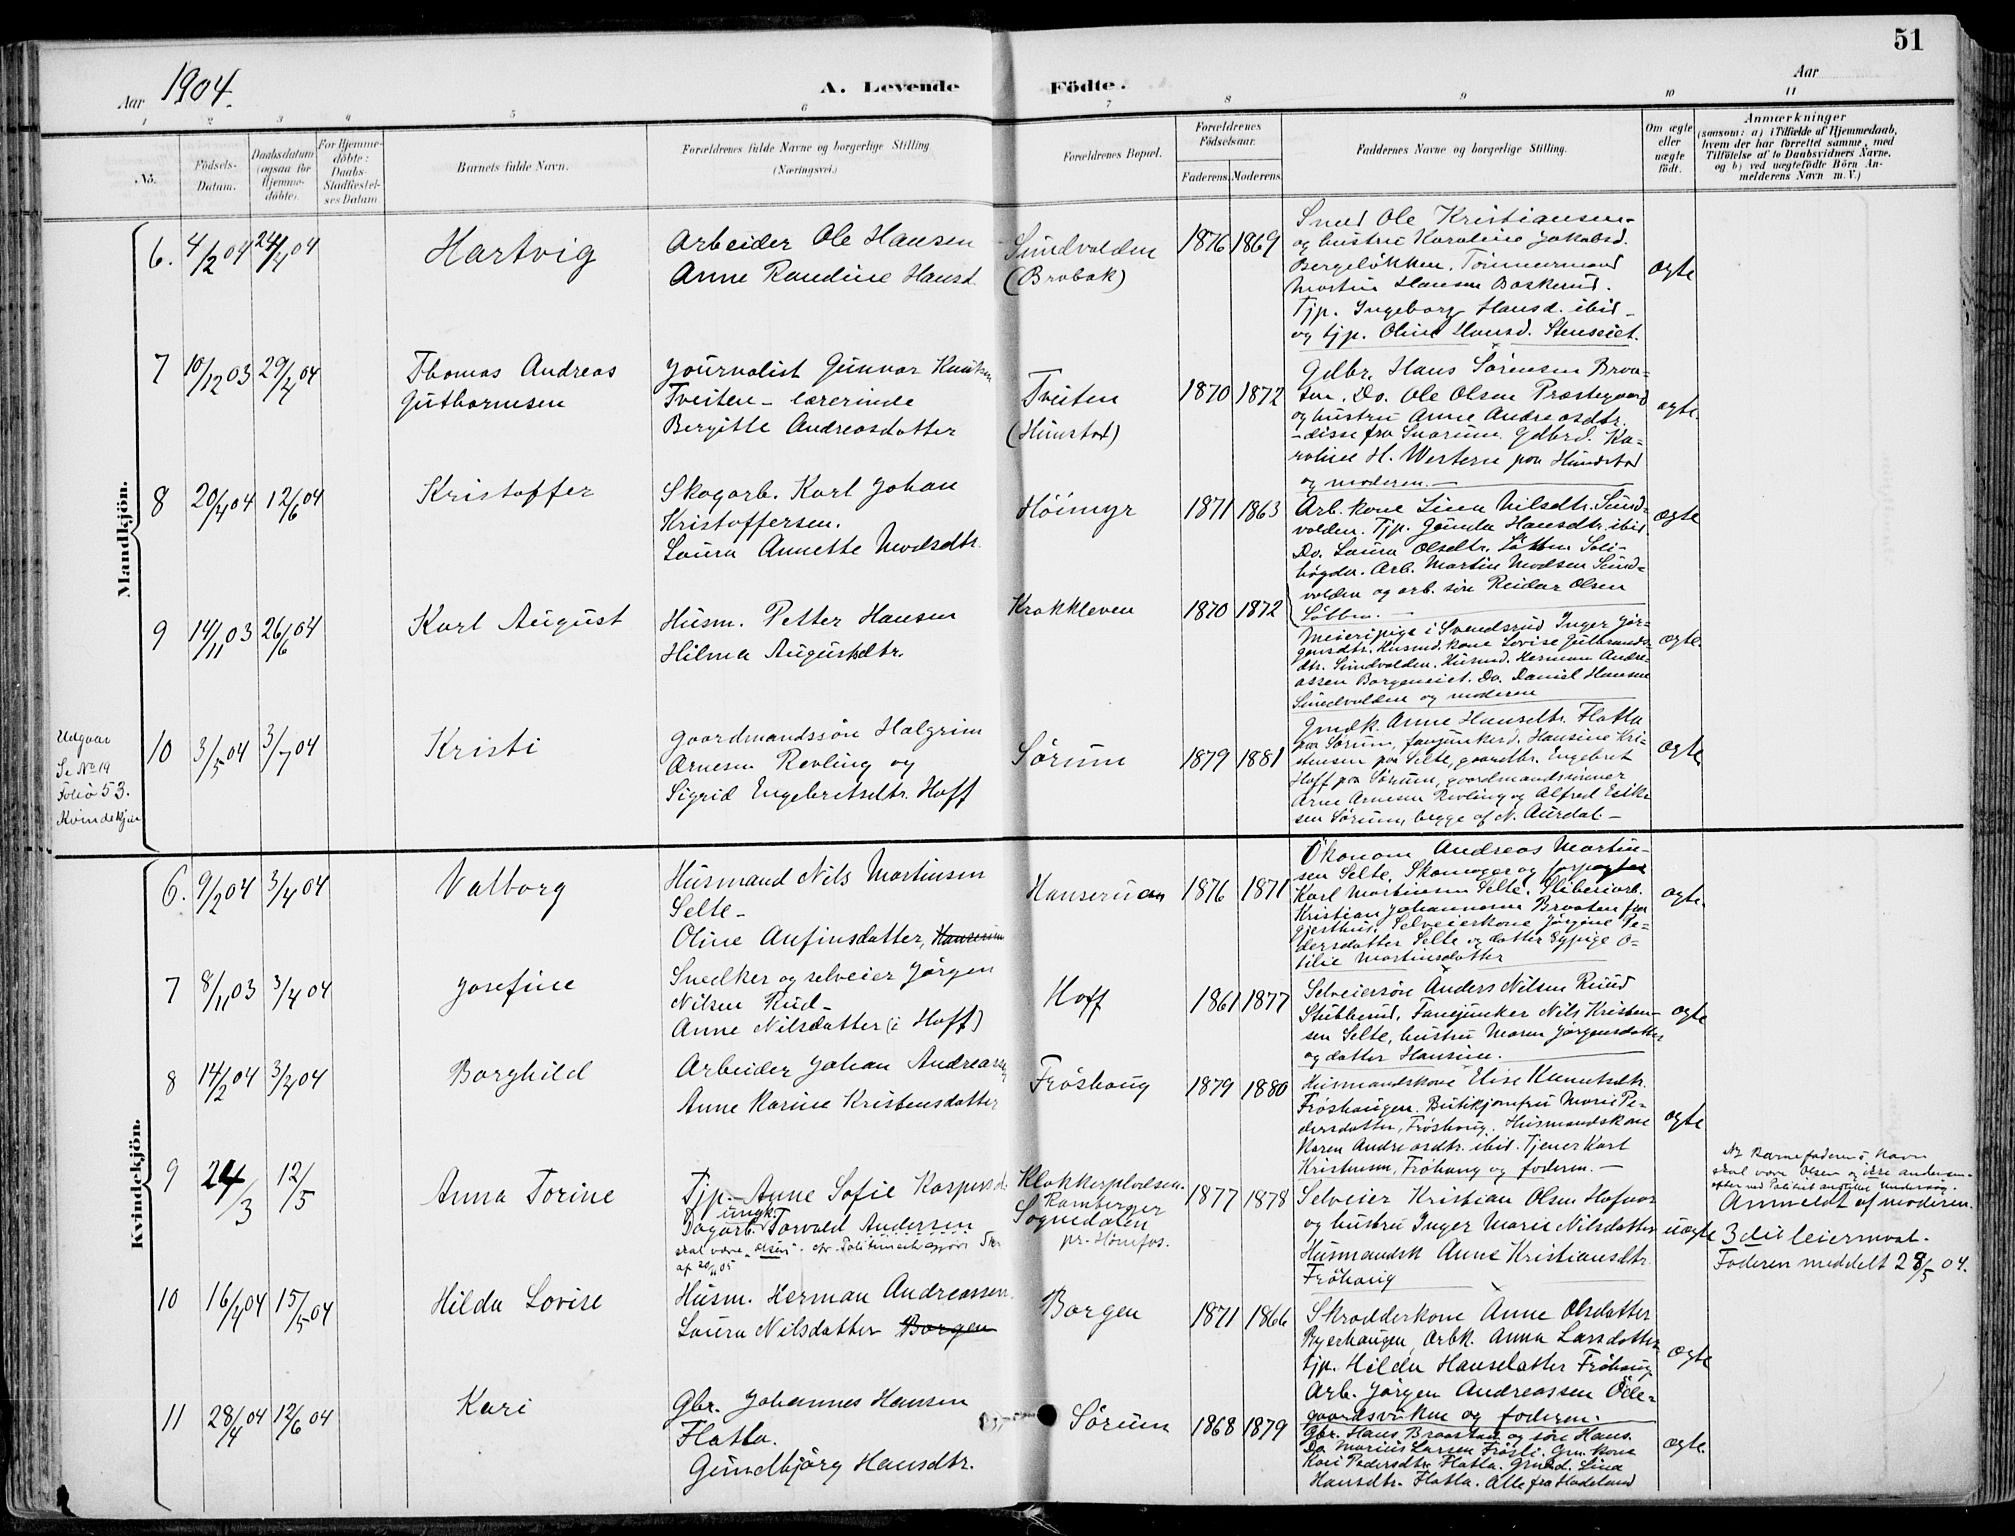 51
Aar 1904.
A. Levende Födte.
Aar
1 2 3 4 5 6 7 8 9 10 11
No.
Födsels-Datum.
Daabsdatum (ogsaa for Hjemmedöbte).
For Hjemmedöbte: Daabs-Stadfæstelses Datum
Barnets fulde Navn.
Forældrenes fulde Navne og borgerlige Stilling (Næringsvei.)
Forældrenes Bopæl.
Forældrenes Födselsaar.
Faderens. Moderens.
Faddernes Navne og borgerlige Stilling.
Om ægte eller uægte födt.
Anmærkninger
(saasom: a) i Tilfælde af Hjemmedaab,
hvem der har forrettet samme, med
Tilföielse af to Daabsvidners Navne,
og b) ved uægtefödte Börn Anmelderens Navn m. V.)
Mandkjön.
6. 4/2 04 24/4 04 Hartvig
Arbeider Ole Hansen
Anne Randine Hansd.
Sundvolden
(Brobak)
1876 1869
Smed Ole Kristiansen
og hustru Karoline Jakobsd.
Bergeløkken. Tømmermand
Martin Hansen Baskerud.
Tjp. Ingeborg Hansd. ibid
og tjp. Oline Hansd. Stenseiet.
ægte
7 10/12 03 29/4 04 Thomas Andreas
Guthormsen
Journalist Gunvar Knutsen
Tveiten - lærerinde
Bergitte Andreasdatter
Tveiten
(Hunstad)
1870 1872
Gdbr. Hans Sørensen Braa-
ten. Do. Ole Olsen Præstegaard
og hustru Anne Andreasdtr.
- disse fra Snarum. Gdbrd. Ka-
roline H. Western paa Hundstad
og moderen.
ægte
8 20/4 04 12/6 04 Kristoffer
Skogarb. Karl Johan
Kristoffersen.
Laura Annette Modsdtr.
Höimyr
1871 1863
Arb. kone Lina Nilsdtr. Sund-
volden. Tjp. Gunda Hansdtr. ibid
Do. Laura Olsdtr. Løtten Soli-
høgda. Arb. Martin Modsen Sund-
volden og arb. søn Reidar Olsen
Løtten.
ægte
9 14/11 03 26/6 04 Karl August
Husm. Petter Hansen
Hilma Augustsdtr.
Krokkleven
1870 1872
Meieripige i Svendsrud Inger Jör-
gensdtr. Husmd. kone Lovise Gulbrands-
dtr. Sundvolden. Husmd. Herman Andre-
assen Borgeneiet. Do. Daniel Hansen
Sundvolden og moderen
ægte.
Udgaar
Se No 14
Folio 53.
Kvindekjön
10 3/5 04 3/7 04 Kristi
Gaardmandssøn Halgrim
Arnesen Revling og
Sigrid Engebretsdtr. Hoff
Sørum
1879 1881
Gmdk. Anne Hansdtr. Flatla
paa Sørum, fanejunkerd. Hansine Kri-
stensen paa Selte, gaardbr. Engebret
Hoff paa Sørum, gaardmandssønner
Arne Arnesen Revling og Alfred Erik-
sen Sørum, begge af N. Aurdal.
ægte.
Kvindekjön.
6. 9/2 04 3/4 04 Valborg
Husmand Nils Martinsen
Selte -
Oline Anfinsdatter, Hanserud
Hanseruden
1876 1871
Økonom Andreas Martin-
sen Selte, Skomager og forpagter
Karl Martinsen Selte. Sliberiarb.
Kristian Johannesen Braaten fra
Gjesthus. Selveierkone Jörgine Pe-
dersdatter Selte og datter sypige O-
tilie Martinsdatter
ægte.
7 8/11 03 3/4 04 Josefine
Snedker og selveier Jörgen
Nilsen Rud -
Anne Nilsdatter (i Hoff)
Hoff
1861 1877
Selveiersøn Anders Nilsen Ruud
Stubberud, Fanejunker Nils Kristen-
sen Selte, hustru Maren Jörgensdatter
og datter Hansine.
ægte
8 14/2 04 3/4 04 Borghild
Arbeider Johan Andreassen
Anne Karine Kristensdatter
Frøshoug
1879 1880
Husmandskone Elise Knutsdtr.
Frøshaugen. Butikjomfru Marie Pe-
dersdatter, Frøshoug. Husmandskone
Karen Andreasdtr. ibid. Tjener Karl
Kristensen, Frøhaug og faderen.
ægte
9 24/3 12/5 Anna Torine
Tjp. - Anne Sofie Kaspersd.
ungk.
Dagarb. Torvald Andersen
skal være "Olsen".
af 20/11 05
Klokkerpladsen.
Ramberger
Sognedalen
pr. Hønefos.
1877 1878
Selveier Kristian Olsen Hofmor
og hustru Inger Marie Nilsdatter
Husmandsk Anne Kristiansdtr.
Frøhaug
uægte
Nb Barnefaderens Navn
skal være Olsen og ikke Andersen
Anmeldt af moderen.
3die leiermaal.
Faderen meddelt 28/5 04.
10 16/4 04 15/5 04 Hilda Lovise
Husm. Herman Andreassen.
Laura Nilsdatter Borgen
Borgen
1871 1866
Skrædderkone Anne Olsdatter
Byerhaugen, Arbk. Anna Larsdatter
tjp. Hilda Hansdatter Frøhaug
Arb. Jörgen Andreassen Øde-
gaardsviken og faderen.
ægte
11 28/4 04 12/6 04 Kari
Gbr. Johannes Hansen
Flatla.
Gundbjørg Hansdtr.
Sørum
1868 1879
Gbr. Hans Braastad og søn Hans.
Do Marius Larsen Frøsli. Gm. kone
Kari Pedersdtr. Flatla. Gmd. Lina
Hansdtr. Flatla. Alle fra Hadeland
ægte.